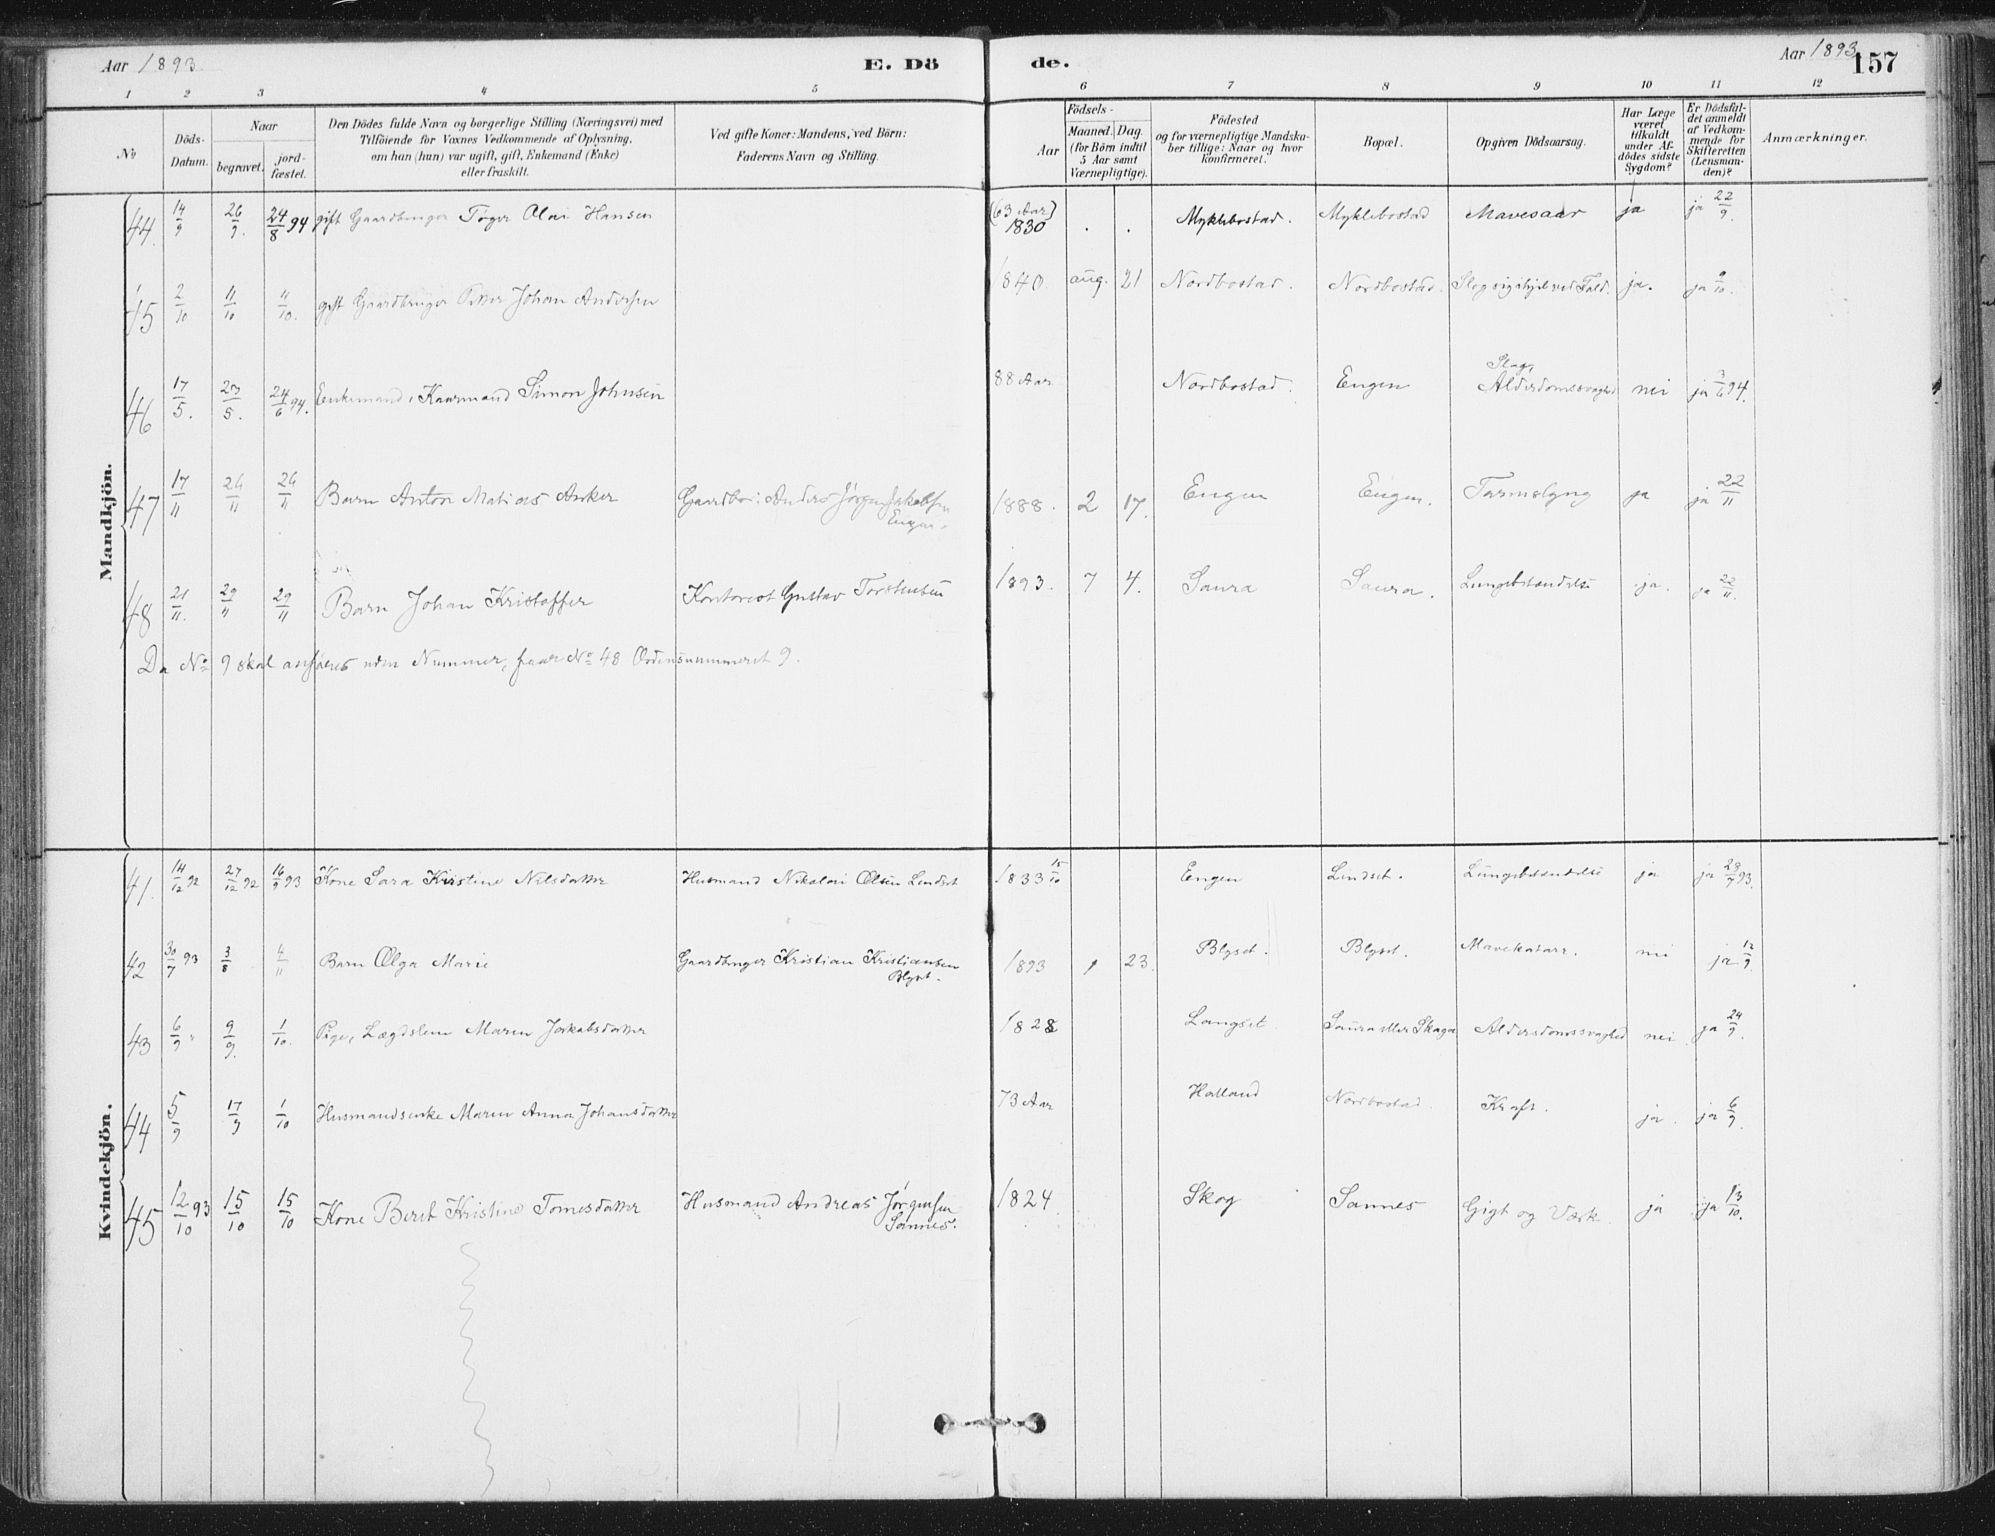 Aar 1893 E. Dö de. Aar 1893 157
1 2 3 4 5 6 7 8 9 10 11 12
No Döds-Datum. Naar begravet. jord-fæstet. Den Dödes fulde Navn og borgerlige Stilling (Næringsvei) med Tilföiende for Voxnes Vedkommende af Oplysning, om han (hun) var ugift, gift, Enkemand (Enke) eller fraskilt. Ved gifte Koner: Mandens, ved Börn: Faderens Navn og Stilling. Födsels- Aar Maaned. Dag. (for Börn indtil 5 Aar samt Værnepligtige). Födested og for værnepligtige Mandska-ber tillige: Naar og hvor konfirmeret. Bopæl. Opgiven Dödsaarsag. Har Læge været tilkaldt under Af-dödes sidste Sygdom? Er Dödsfal-det anmeldt af Vedkom-mende for Skifteretten (Lensman-den)? Anmærkninger.
Mandkjön.
44. 14/9 26/9. 24/8 94 gift Gaardbruger Tøger Olai Hansen (63 Aar) 1830 . . Myklebostad. Myklebostad Mavesaar ja ja 22/9.
45 2/10 11/10 11/10. gift Gaardbruger Petter Johan Andersen 1840. aug. 21 Nordbostad. Nordbostad. Slog sig ihjel ved Fald. ja. ja 9/10.
46 17/5. 27/5. 24/6 94. Enkemand, Kaarmand Simon Johnsen 88 Aar Nordbostad. Engen Slag, Alderdomssvaghed nei ja 3/6 94.
47 17/11 26/11 26/11 Barn Anton Matias Anker Gaardbr: Anders Jørgen Jakobsen Engen. 1888. 2 17. Engen Engen. Tarmslyng ja ja 22/11
48 21/11. 29/11 29/11 Barn Johan Kristoffer Kontorist Gustav Torstensen 1893. 7 4. Saura Saura. Lungebetændelse ja. ja 22/11.
Da No 9 skal anføres uden Nummer, faar No 48 Ordensnummeret 9.
Kvindekjön.
41. 14/12 92 27/12 92 16/9 93 Kone Sara Kristine Nilsdatter Husmand Nikolai Olsen Lendset 1833 15/10 Engen Lendset. Lungebetændelse ja ja 29/7 93.
42 30/7 93 3/8 4/11 Barn Olga Marie Gaardbruger Kristian Kristiansen Blyset. 1893 1 23. Blyset. Blyset. Mavekatarr. nei ja 12/9.
43 6/9 " 9/9. 1/10. Pige, Lægdslem Maren Jakobsdatter 1828 Langset. Saura eller Skaga Aldersdomssvaghed nei. ja 24/9.
44 5/9 17/9 1/10 Husmandsenke Maren Anna Johansdatter 73 Aar Halland Nordbostad. Kræft. ja. ja 6/9.
45 12/10 93 15/10 15/10 Kone Berit Kristine Tomesdatter Husmand Andreas Jørgensen Sannes. 1824 Skog Sannes Gigt og Værk. ja ja 13/10.